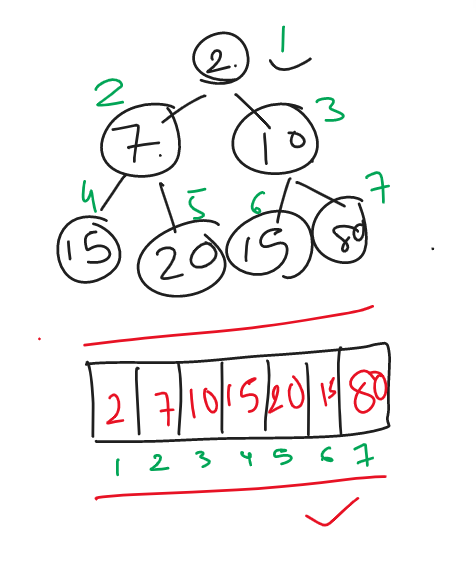 2. 1
2 3
7. 10
4 5 6 7
15 20 15 80
2 7 10 15 20 15 80
1 2 3 4 5 6 7